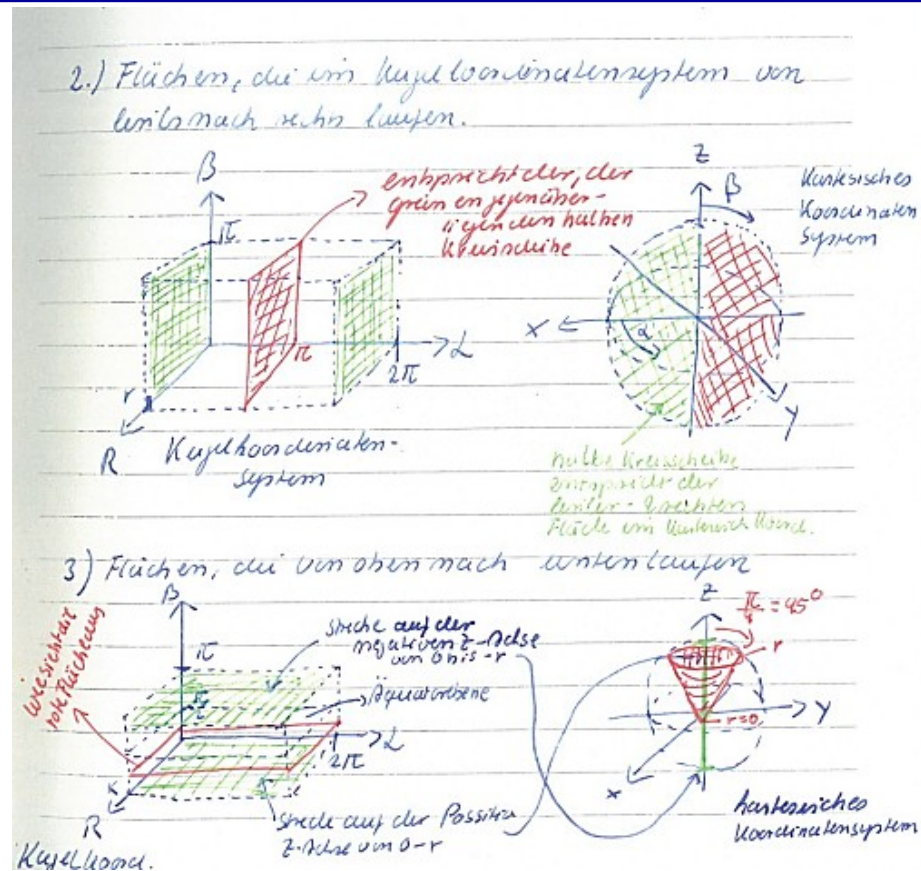 2.) Flächen, die im Kugelkoordinatensystem von
links nach rechts laufen.
β
π
entspricht der, der
grünen gegenüber-
liegenden halben
Kreisscheibe
Z
β
Kartesisches
Koordinaten
System
X
α
Y
r
π
2π
α
R
Kugelkoordinaten-
system
halbe Kreisscheibe
entspricht der
linken- & rechten
Fläche im Koord.
3) Flächen, die von oben nach unten laufen
wie sieht die
rote Fläche aus
β
π
Strecke auf der
negativen Z-Achse
von 0 bis -r
Äquatorebene
α
2π
R
Kugelkoord.
Strecke auf der Possitiv
Z-Achse von 0-r
Z
π/4 = 45°
r
Y
r=0
x
kartesisches
Koordinatensystem